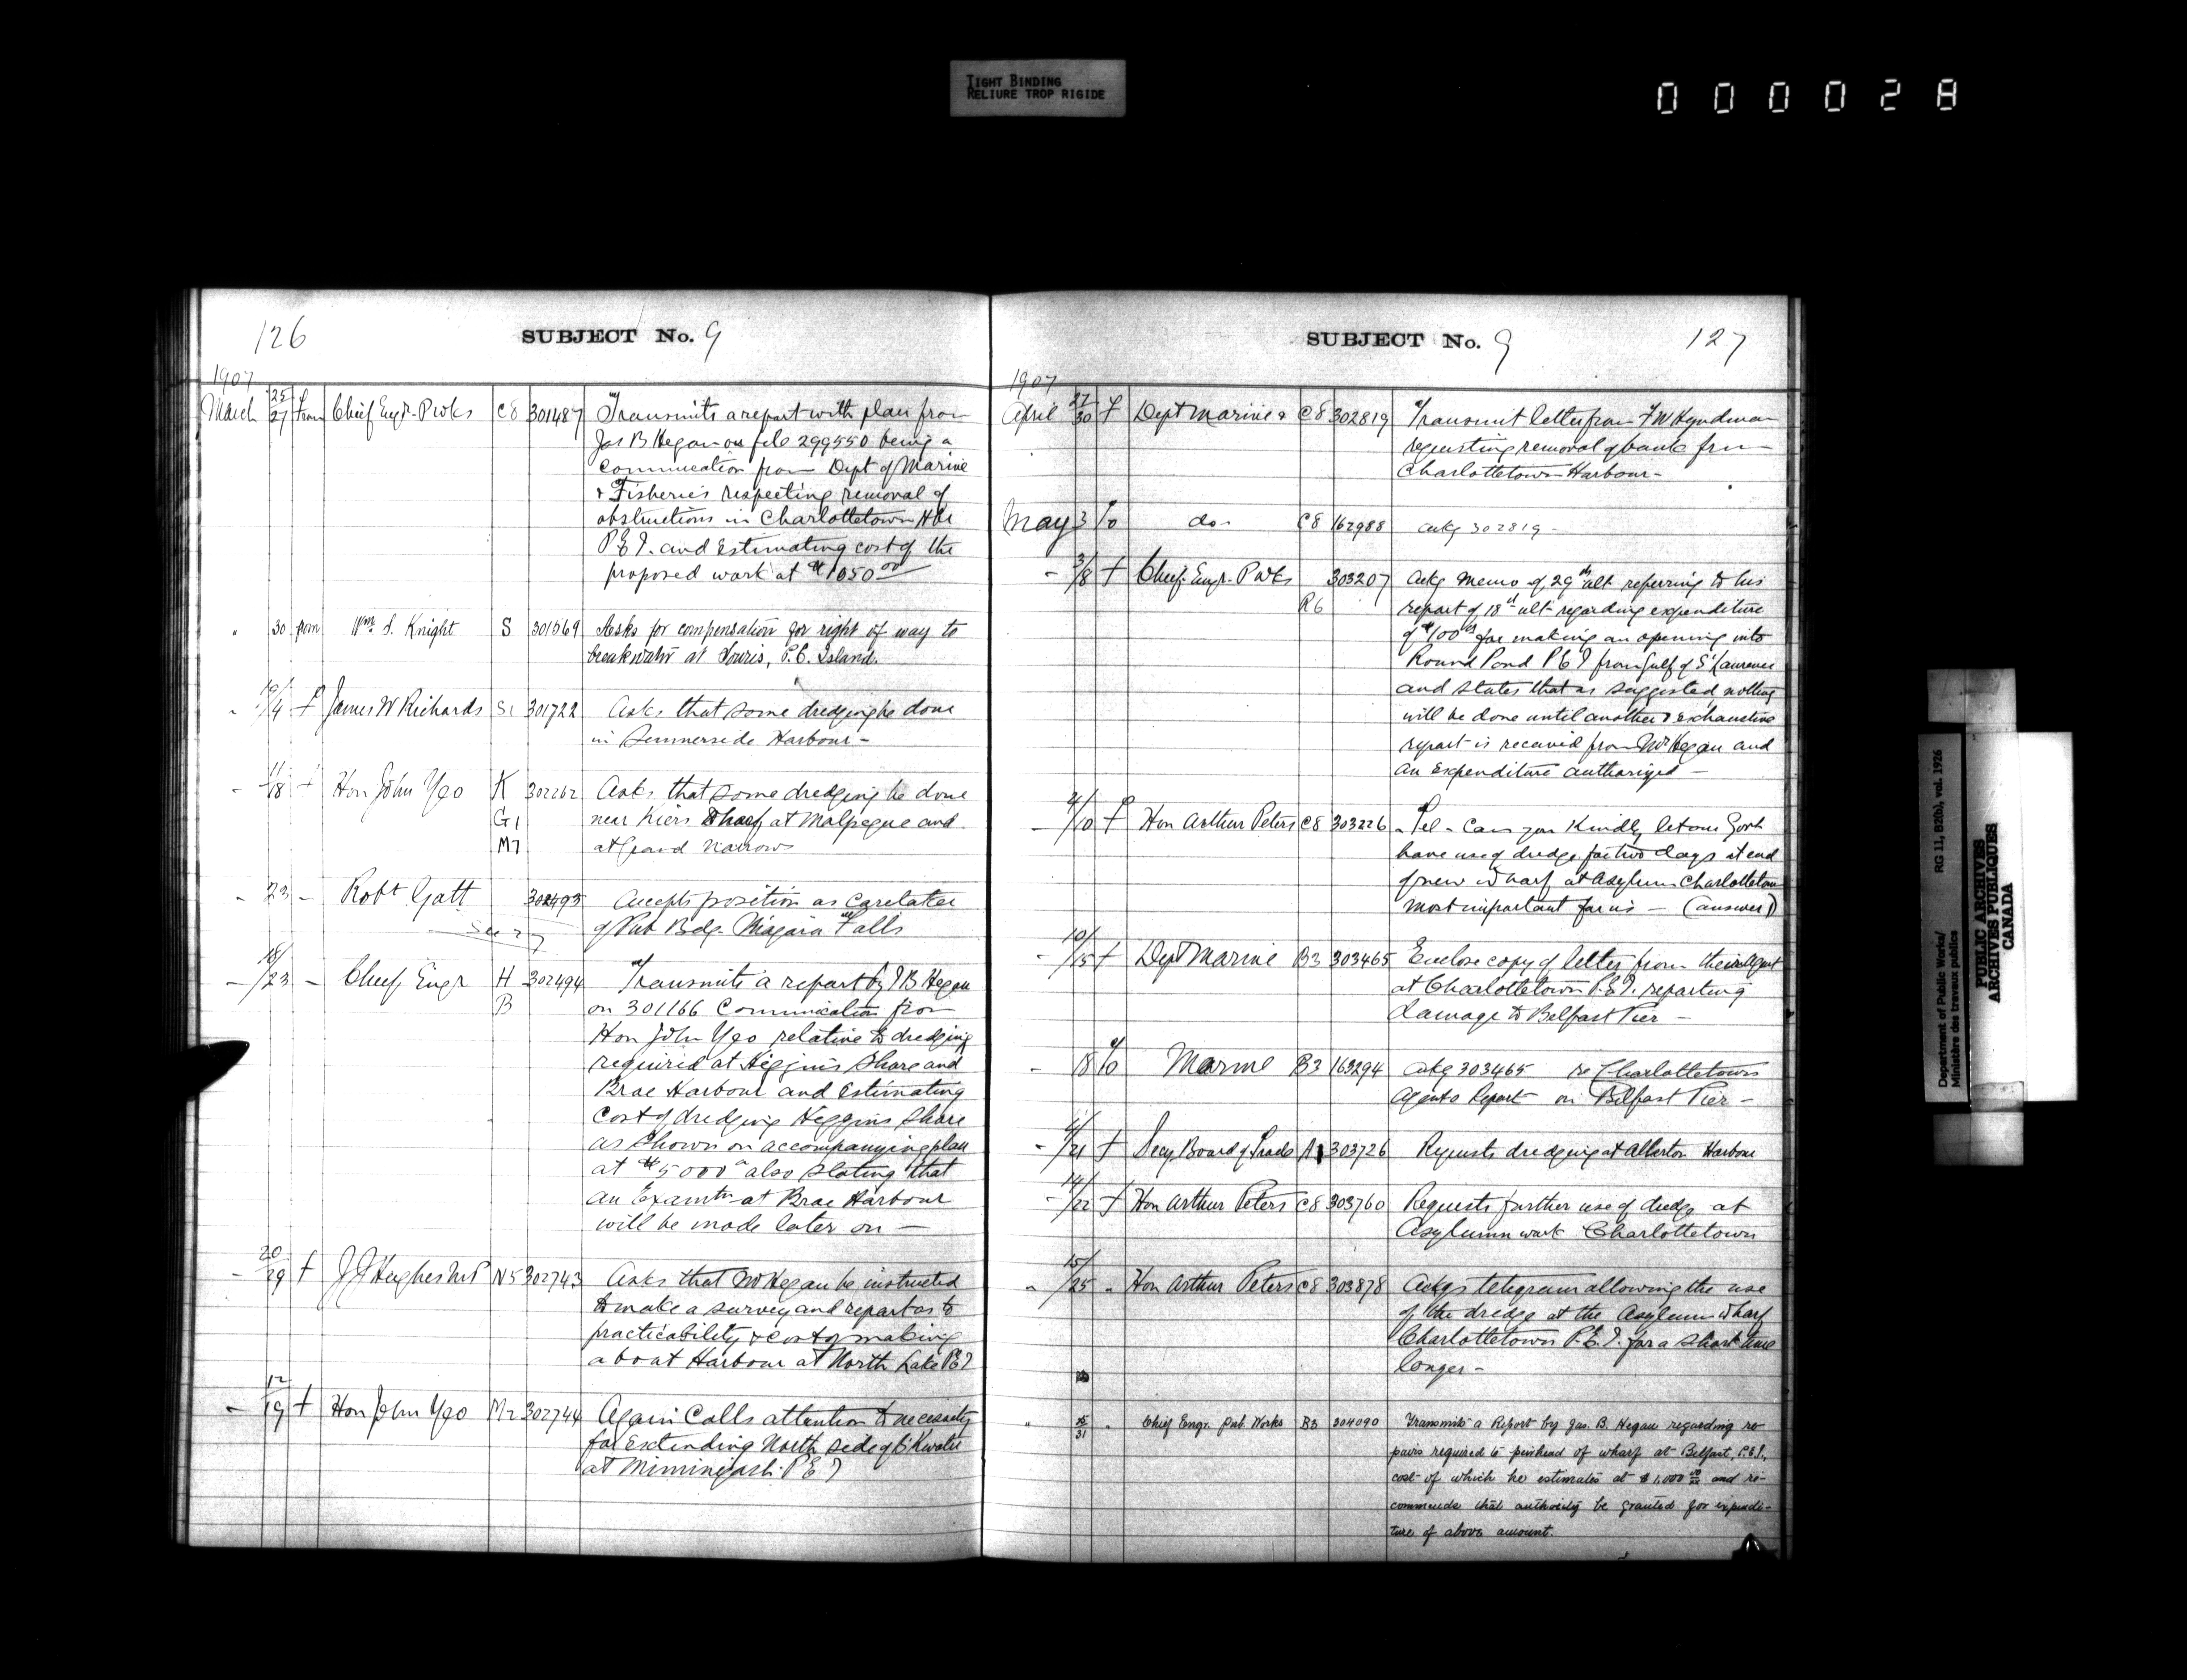 TIGHT BINDING
RELIURE TROP RIGIDE
000028
126
SUBJECT No. 9
1907
March 25/27 From Chief Engr. P wks C8 301487 Transmits a report with plan from
Jas B Hegan on file 299550 being a
Commucation from Dept of Marine
& Fisheries respecting removal of
obstructions in Charlottetown Hbr
P.E.I. and Estimating cost of the
proposed work at $1050.00
" 30 from Wm. S. Knight S 301569 Asks for compensation for right of way to
breakwatr at Souris, P.E. Island.
f James W Richards S1 301722 Asks that some dredging be done
in Summerside Harbour -
- 11/18 f Hon John Yeo K 302262 Asks that some dredging be done
G1 near Kiers Wharf at Malpeque and
M7 at Grand Narrows
- 23 - Robt Gatt 302493 Accepts position as caretaker
See 27 of Pub Bdg. Niagara Falls
- 18/23 - Chief Engr H 302494 Transmits a report by J B Hegan
B on 301166 Communication from
Hon John Yeo relative to dredging
required at Higgins Shore and
Brae Harbour and Estimating
Cost of dredging Higgins Shore
as shown on accompanying plan
at $5000 also stating that
an Examtn at Brae Harbour
will be made later on —
- 20/29 f J J Hughes M.P N5 302743 Asks that Mr Hegan be instructed
to make a survey and report as to
practicability & cost of making
a boat Harbour at North Lake P.E.I
- 12/19 f Hon John Yeo M2 302744 Again Calls attention to necessity
for Extending North side of B'Kwater
at Miminigash P E I
SUBJECT No. 9
127
1907
April 27/30 f Dept Marine & C8 302819 Transmit letter from F W Hyndman
requesting removal of bank from
Charlottetown Harbour -
May 3 To do - C8 162988 ackg 302819 -
- 3/8 f Chief Engr. P wks 303207 ackg memo of 29th ult referring to his
R6 report of 18th ult regarding expenditure
of $100 for making an opening into
Round Pond P E I from Gulf of St Laurence
and states that as suggested nothing
will be done until another & exhaustive
report is received from Mr Hegan and
an Expenditure authorized —
- 4/10 f Hon Arthur Peters C8 303226 - Tel - Can you Kindly let our Govt
have use of dredge for two days at end
of new wharf at Asylum Charlottetown
most important for us — (answer)
- 10/15 f Dept Marine B3 303465 Enclose copy of letter from their Agent
at Charlottetown P.E.I. reporting
damage to Belfast Pier -
- 18 To Marine B3 163294 ackg 303465 re Charlottetown
Agents Report on Belfast Pier -
- /21 f Secy Board of Trade A1 303726 Requests dredging at Alberton Harbour
- 14/22 f Hon Arthur Peters C8 303760 Requests further use of dredge at
Asylumn work Charlottetown
" 15/25 " Hon Arthur Peters C8 303878 Ackgs telegram allowing the use
of the dredge at the Asylum wharf
Charlottetown P.E.I. for a short time
longer -
" 31 " Chief Engr. Pub. Works B3 304090 Transmits a Report by Jas. B. Hegan regarding re-
pairs required to pierhead of wharf at Belfast, P.E.I.,
cost of which he estimates at $1,000 00/xx and re-
commends that authority be granted for expendi-
ture of above amount.
Department of Public Works/ RG 11, B20a), vol. 1926
Ministère des travaux publics
PUBLIC ARCHIVES
ARCHIVES PUBLIQUES
CANADA